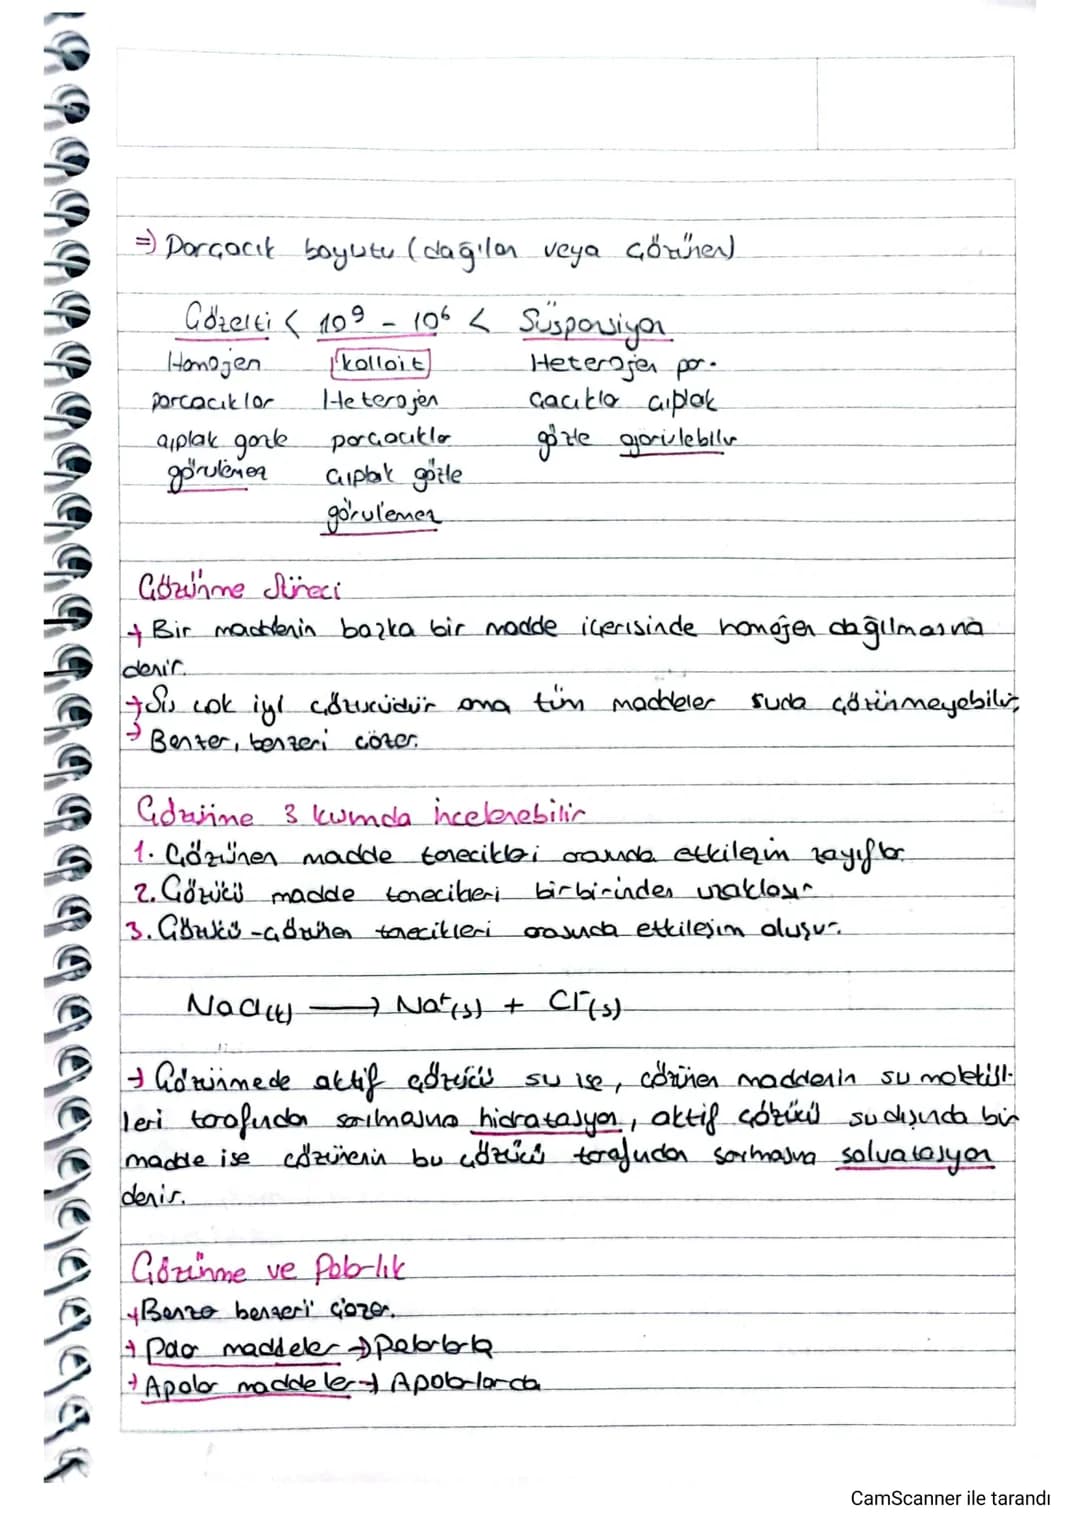 =) Parçacık boyutu (dağılan veya çözünen)
Çözelti < 10⁹ - 10⁶ < Süspansiyon
Homojen kolloit Heterojen par-
parcacıklar Heterojen çacıkla çıplak
çıplak gözle parçacıklar gözle görülebilir
görülemez çıplak gözle
görülemez
Çözünme Süreci
→ Bir maddenin başka bir madde içerisinde homojen dağılmasına
denir.
→ Su çok iyi çözücüdür ama tüm maddeler suda çözünmeyebilir,
→ Benzer, benzeri çözer.
Çözünme 3 kısımda incelenebilir
1. Çözünen madde tanecikleri arasında etkileşim zayıflar.
2. Çözücü madde tanecikleri birbirinden uzaklaşır
3. Çözücü - çözünen tanecikleri arasında etkileşim oluşur.
NaCl(k) ⟶ Na⁺(s) + Cl⁻(s)
→ Çözünmede aktif çözücü su ise, çözünen maddenin su molekül-
leri tarafından sarılmasına hidratasyon, aktif çözücü su dışında bir
madde ise çözünenin bu çözücü tarafından sarılmasına solvatasyon
denir.
Çözünme ve Polarlık
→ Benzer benzeri çözer.
→ Polar maddeler → Polarlarla
→ Apolar maddeler → Apolarlarda
CamScanner ile tarandı